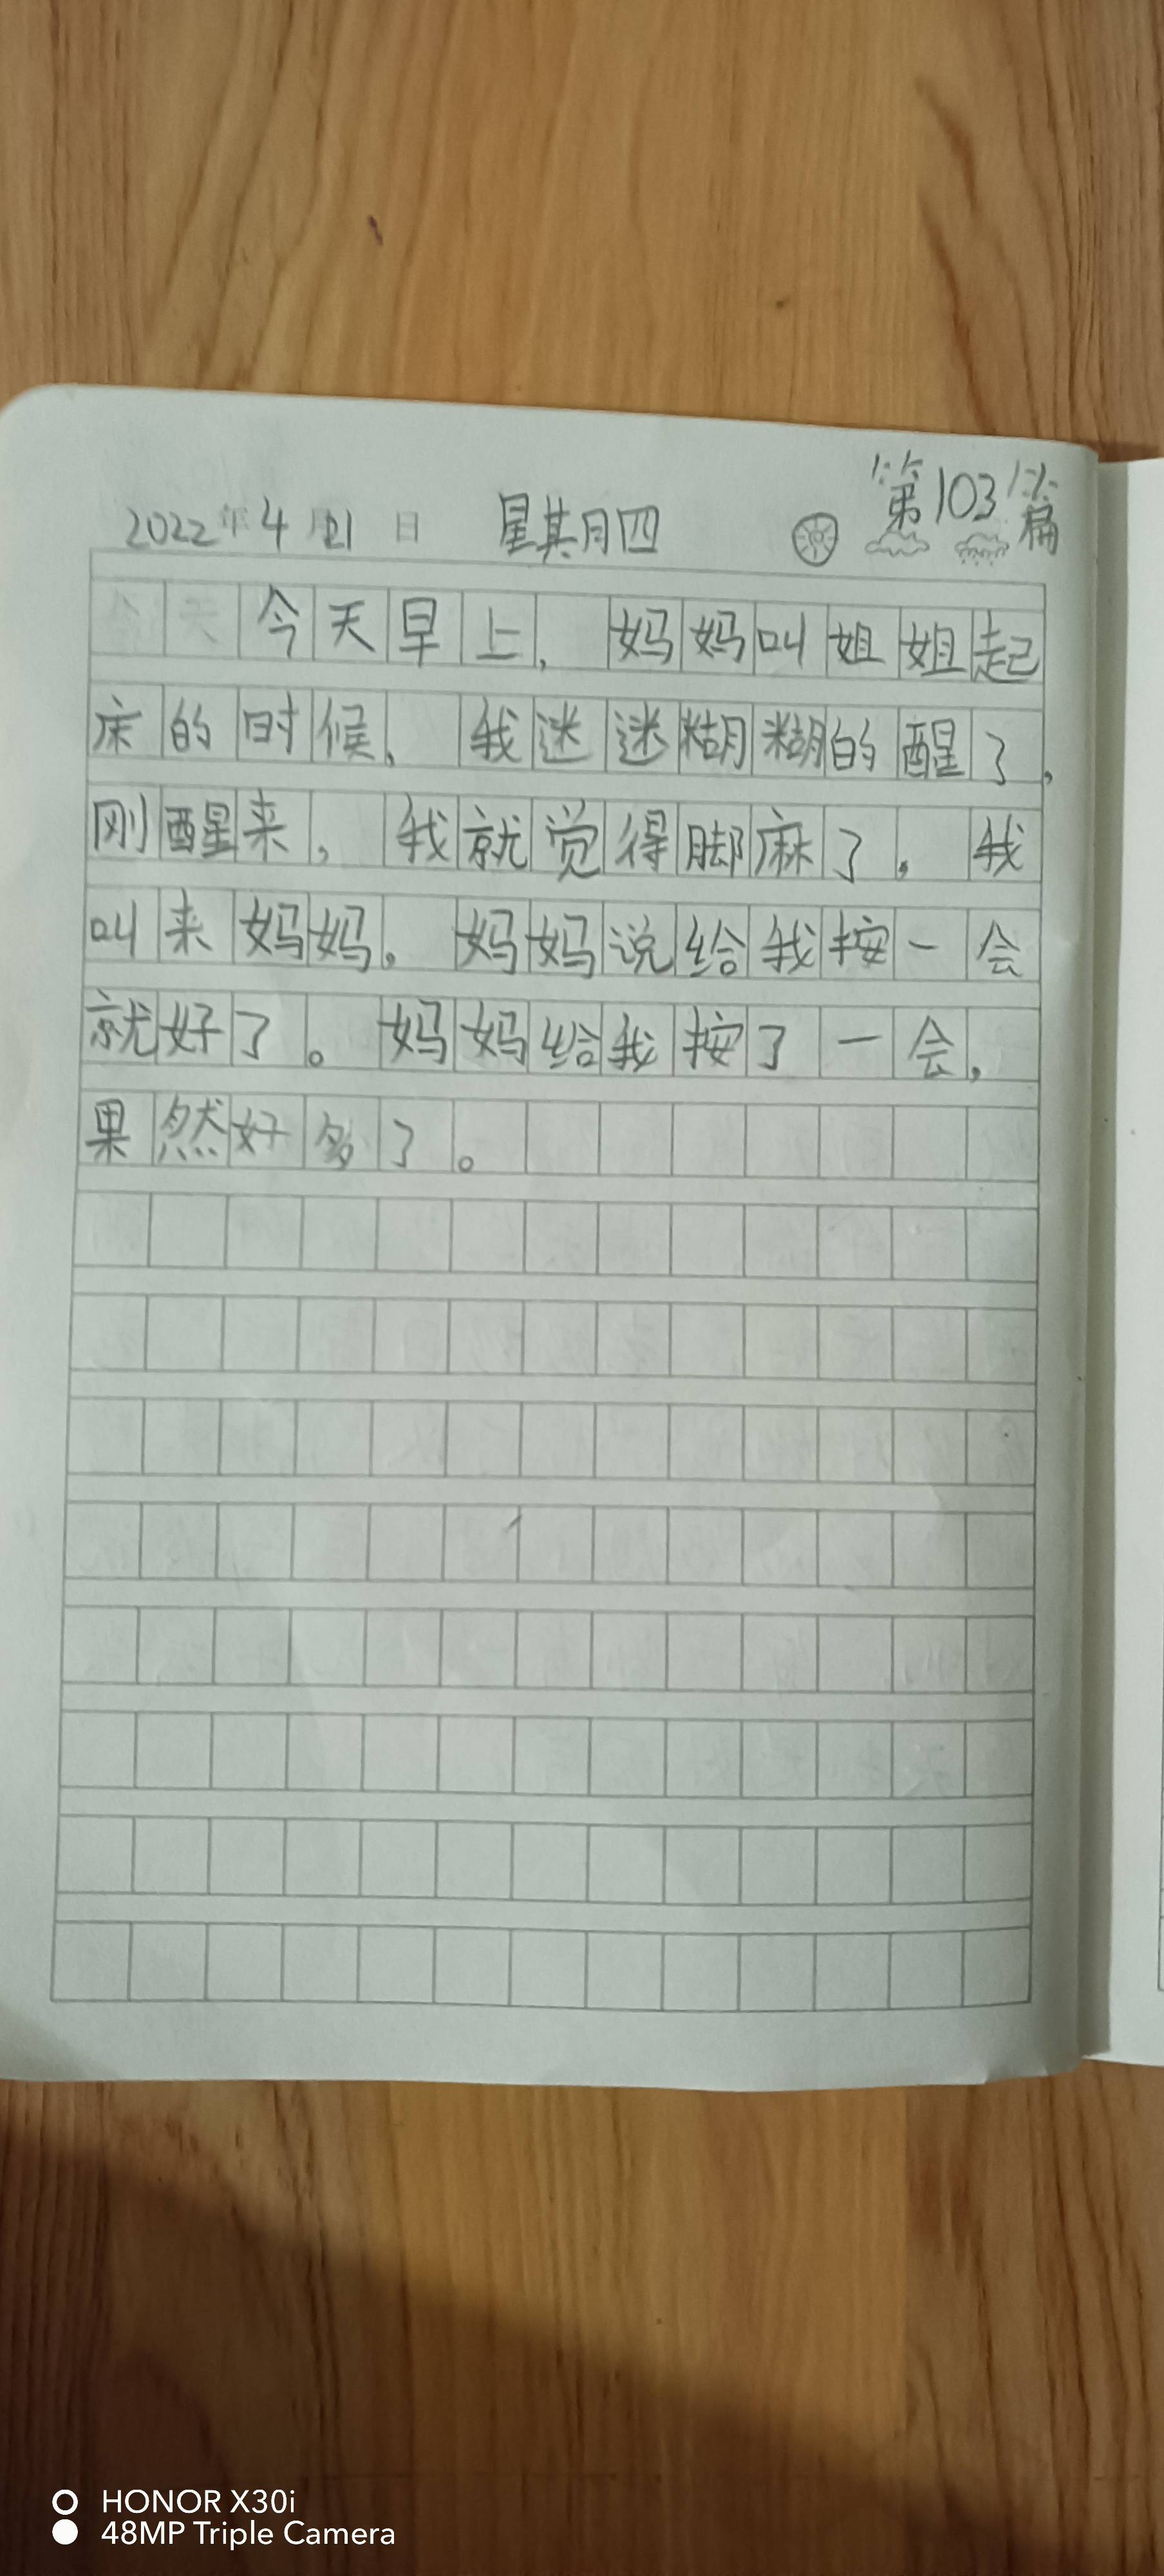 第103篇
2022年4月21日 星期四
今天早上，妈妈叫姐姐起
床的时候，我迷迷糊糊的醒了，
刚醒来，我就觉得脚麻了。我
叫来妈妈。妈妈说给我按一会
就好了。妈妈给我按了一会，
果然好多了。
HONOR X30i
48MP Triple Camera